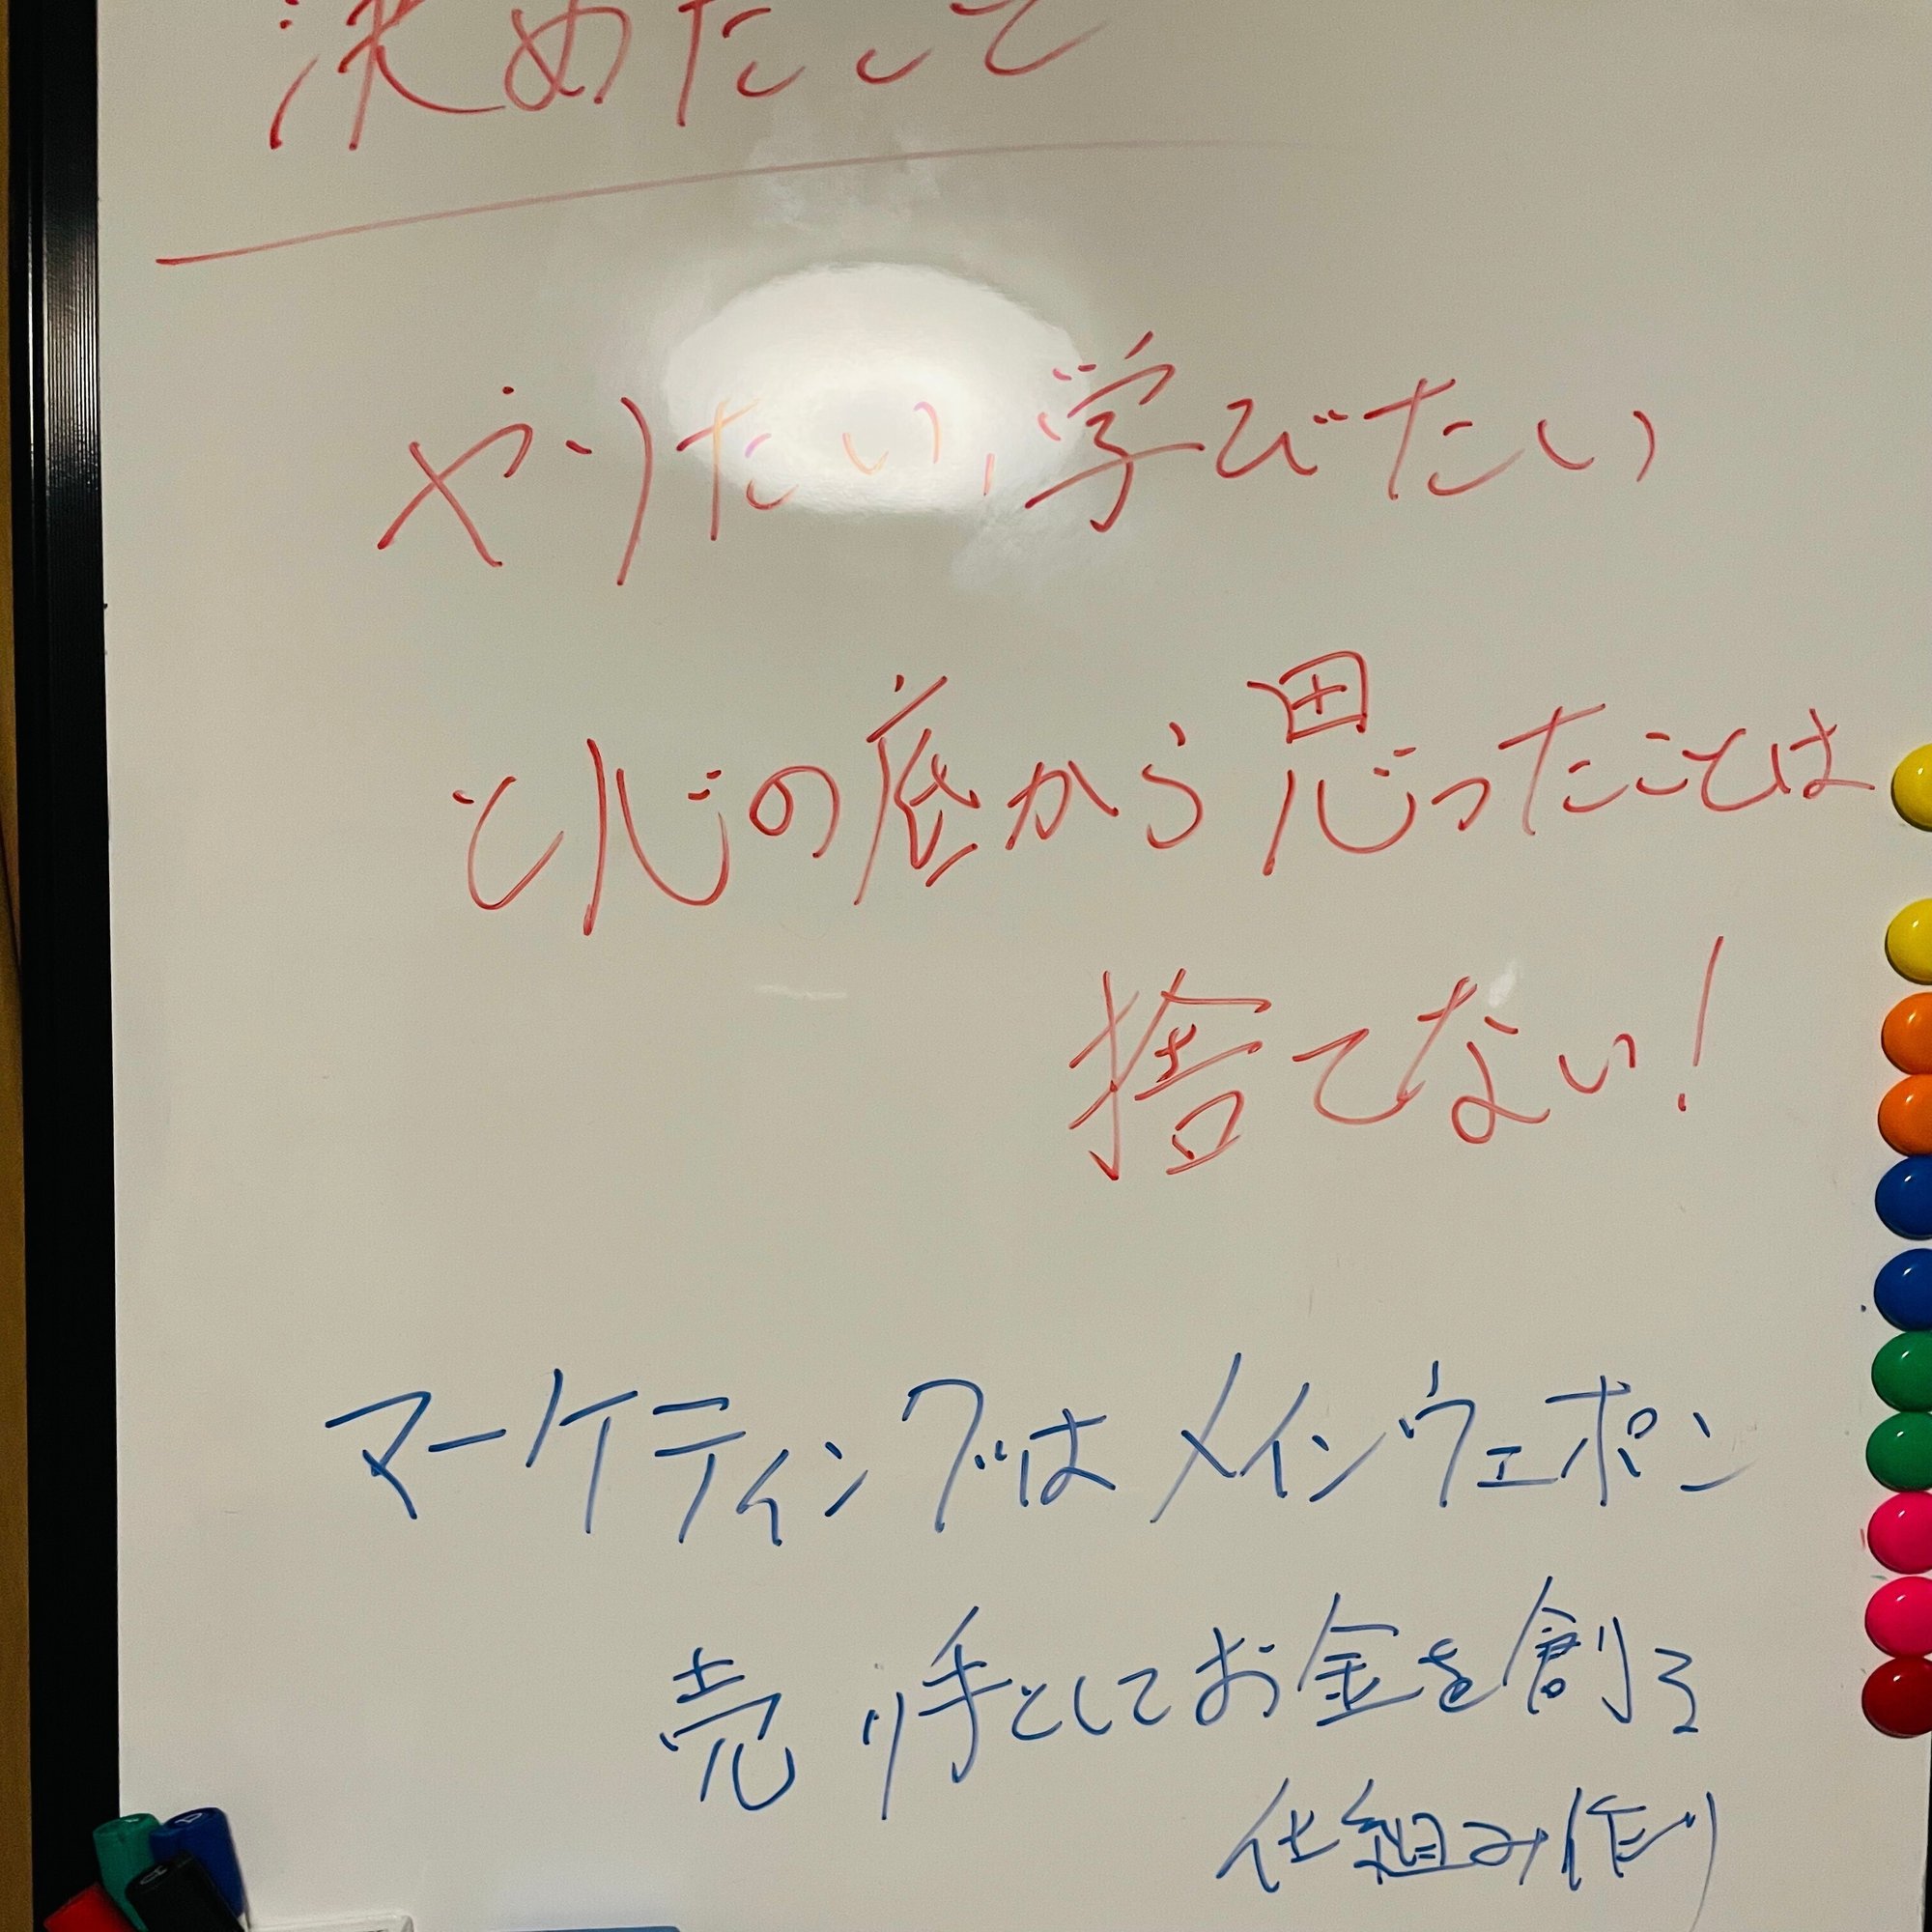 決めたこと
やりたい、学びたい
と心の底から思ったことは
捨てない!
マーケティングはメインウェポン
売り手としてお金を創る
仕組み作り